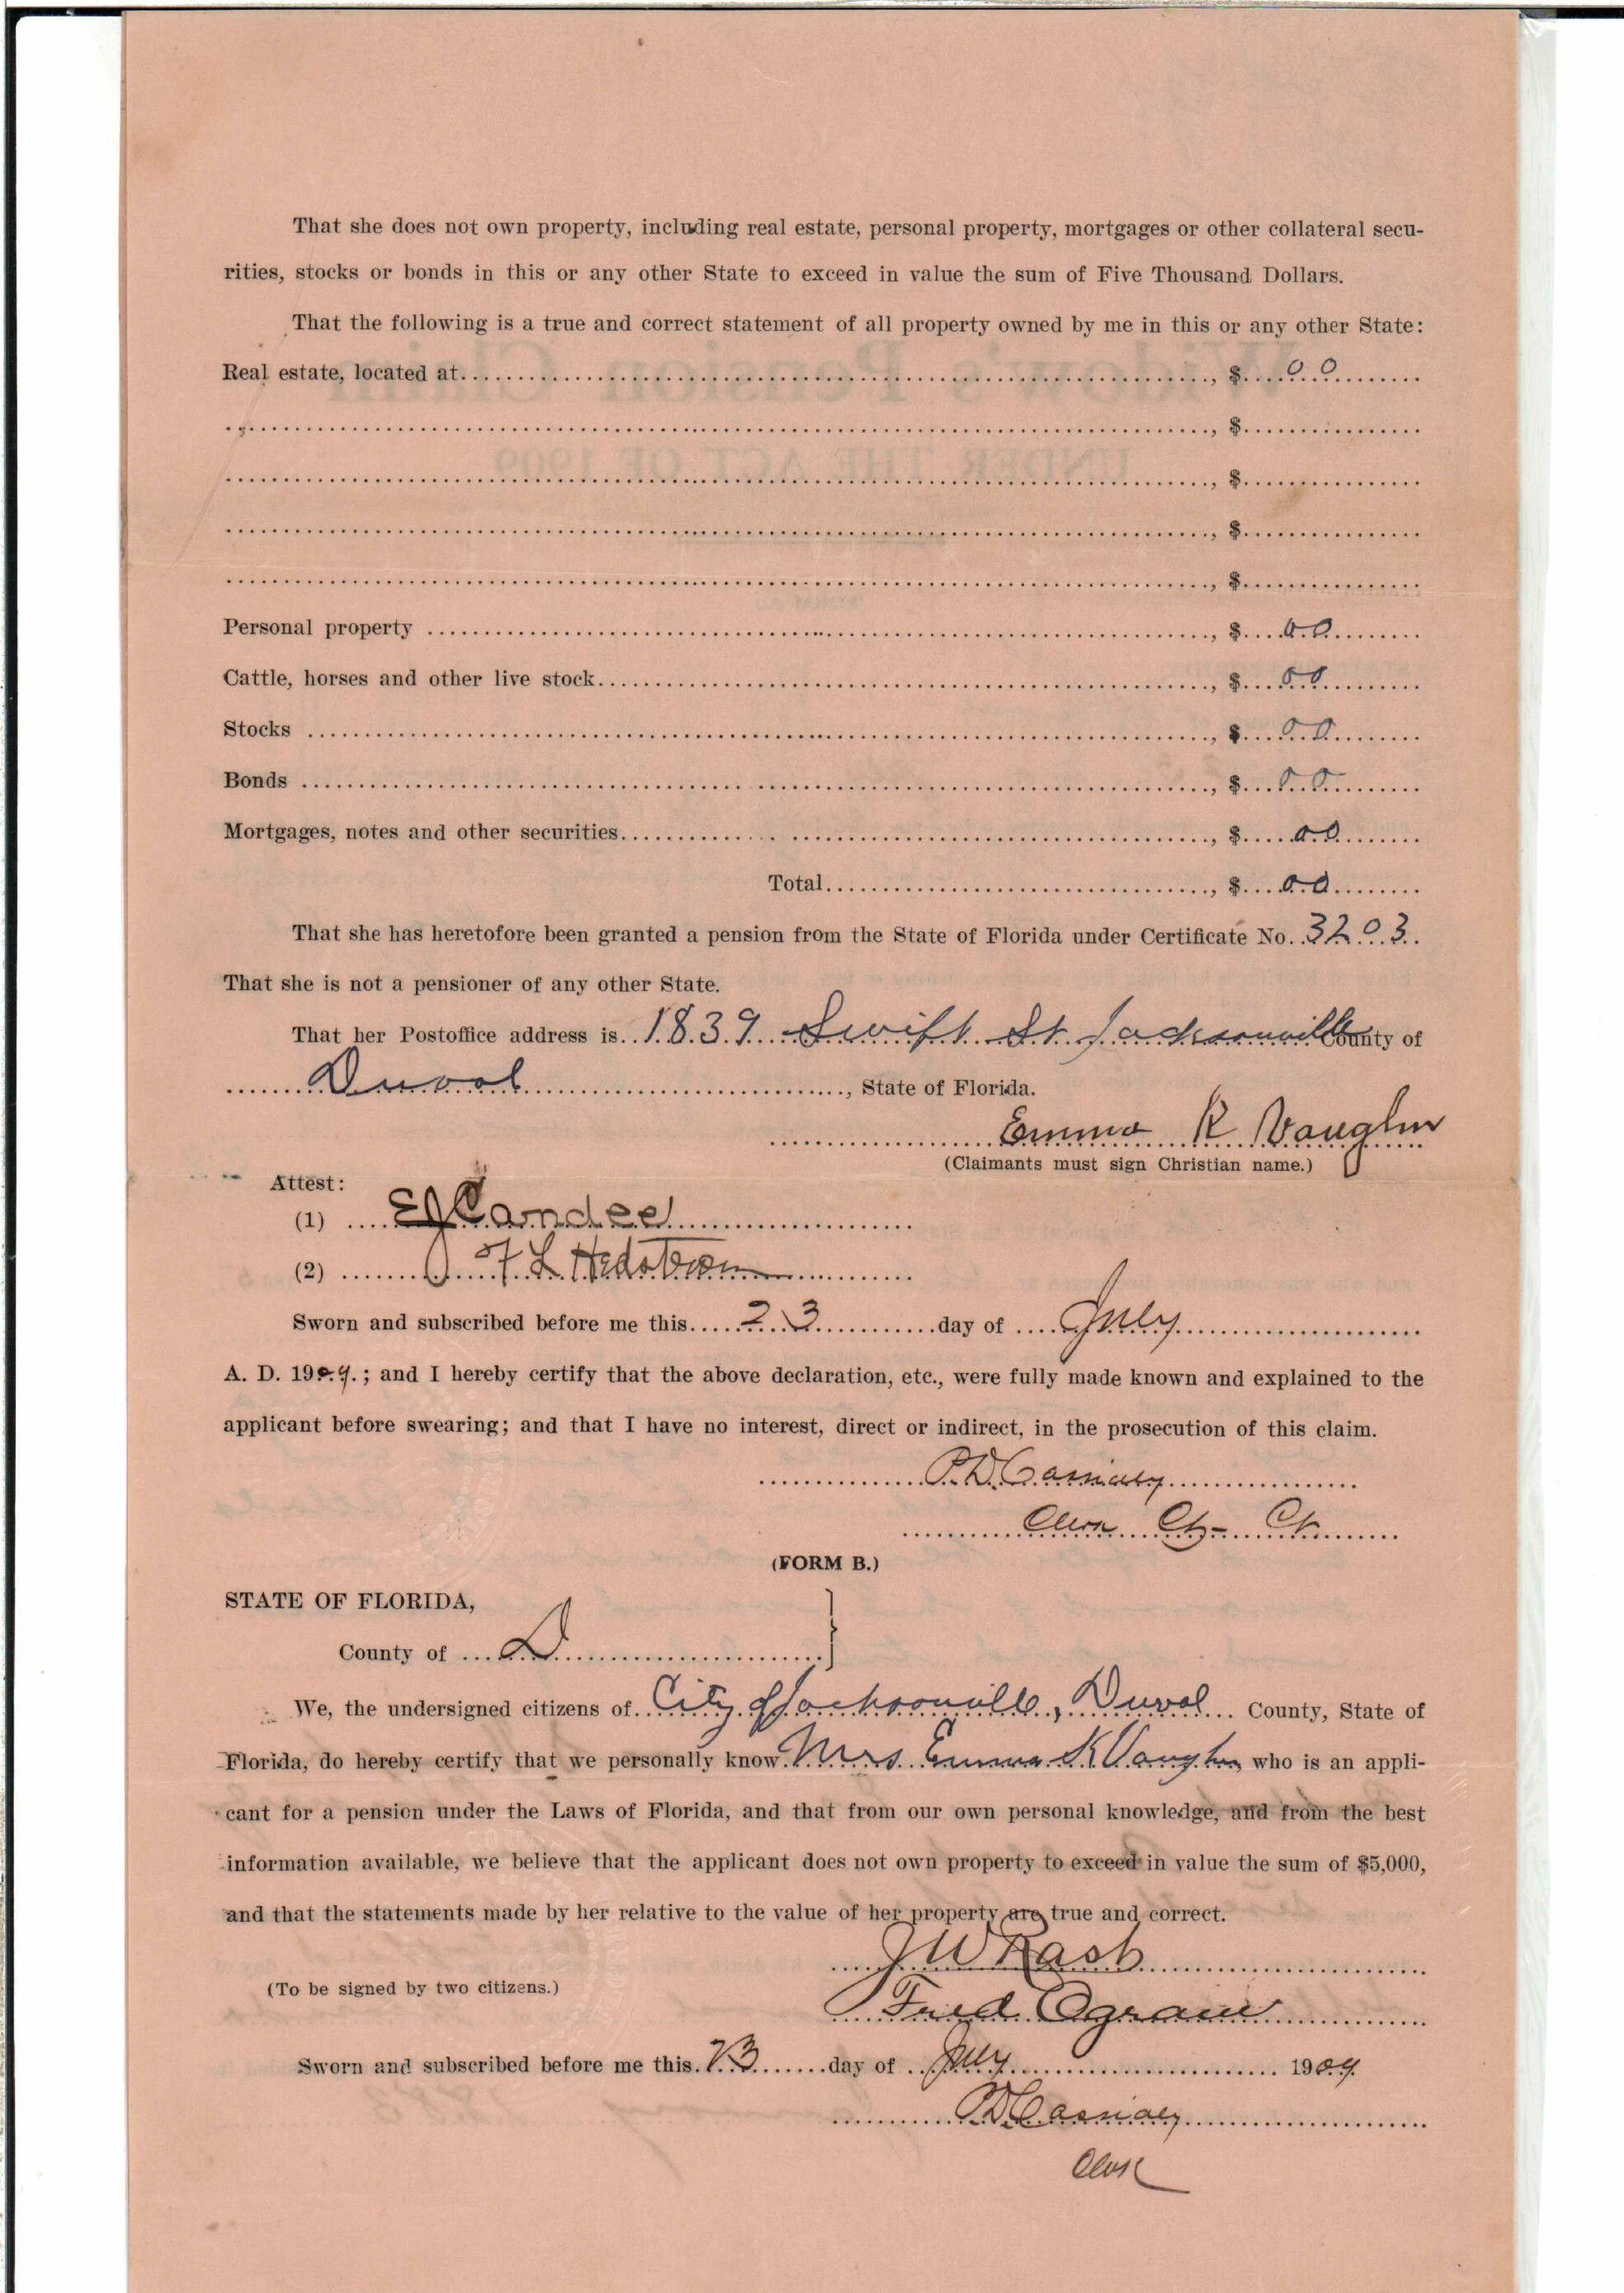 That she does not own property, including real estate, personal property, mortgages or other collateral secu-
rities, stocks or bonds in this or any other State to exceed in value the sum of Five Thousand Dollars.
That the following is a true and correct statement of all property owned by me in this or any other State:
Real estate, located at..............., $ 00
..............., $...............
..............., $...............
..............., $...............
..............., $...............
Personal property ..............., $ 00
Cattle, horses and other live stock..............., $ 00
Stocks ..............., $ 00
Bonds ..............., $ 00
Mortgages, notes and other securities..............., $ 00
Total..............., $ 00
That she has heretofore been granted a pension from the State of Florida under Certificate No. 3203.
That she is not a pensioner of any other State.
That her Postoffice address is 1839 Swift St Jacksonville County of
Duval, State of Florida.
Emma R Vaughn
(Claimants must sign Christian name.)
Attest:
(1) EJ Candee
(2) F L Hedstrom
Sworn and subscribed before me this 23 day of July
A. D. 1909.; and I hereby certify that the above declaration, etc., were fully made known and explained to the
applicant before swearing; and that I have no interest, direct or indirect, in the prosecution of this claim.
PD Cassidey
Clerk Ct Ct
(FORM B.)
STATE OF FLORIDA,
County of D
We, the undersigned citizens of City of Jacksonville, Duval County, State of
Florida, do hereby certify that we personally know Mrs. Emma R Vaughn who is an appli-
cant for a pension under the Laws of Florida, and that from our own personal knowledge, and from the best
information available, we believe that the applicant does not own property to exceed in value the sum of $5,000,
and that the statements made by her relative to the value of her property are true and correct.
J W Rast
(To be signed by two citizens.)
Fred
Sworn and subscribed before me this 23 day of July 1909.
PD Cassidey
Clerk